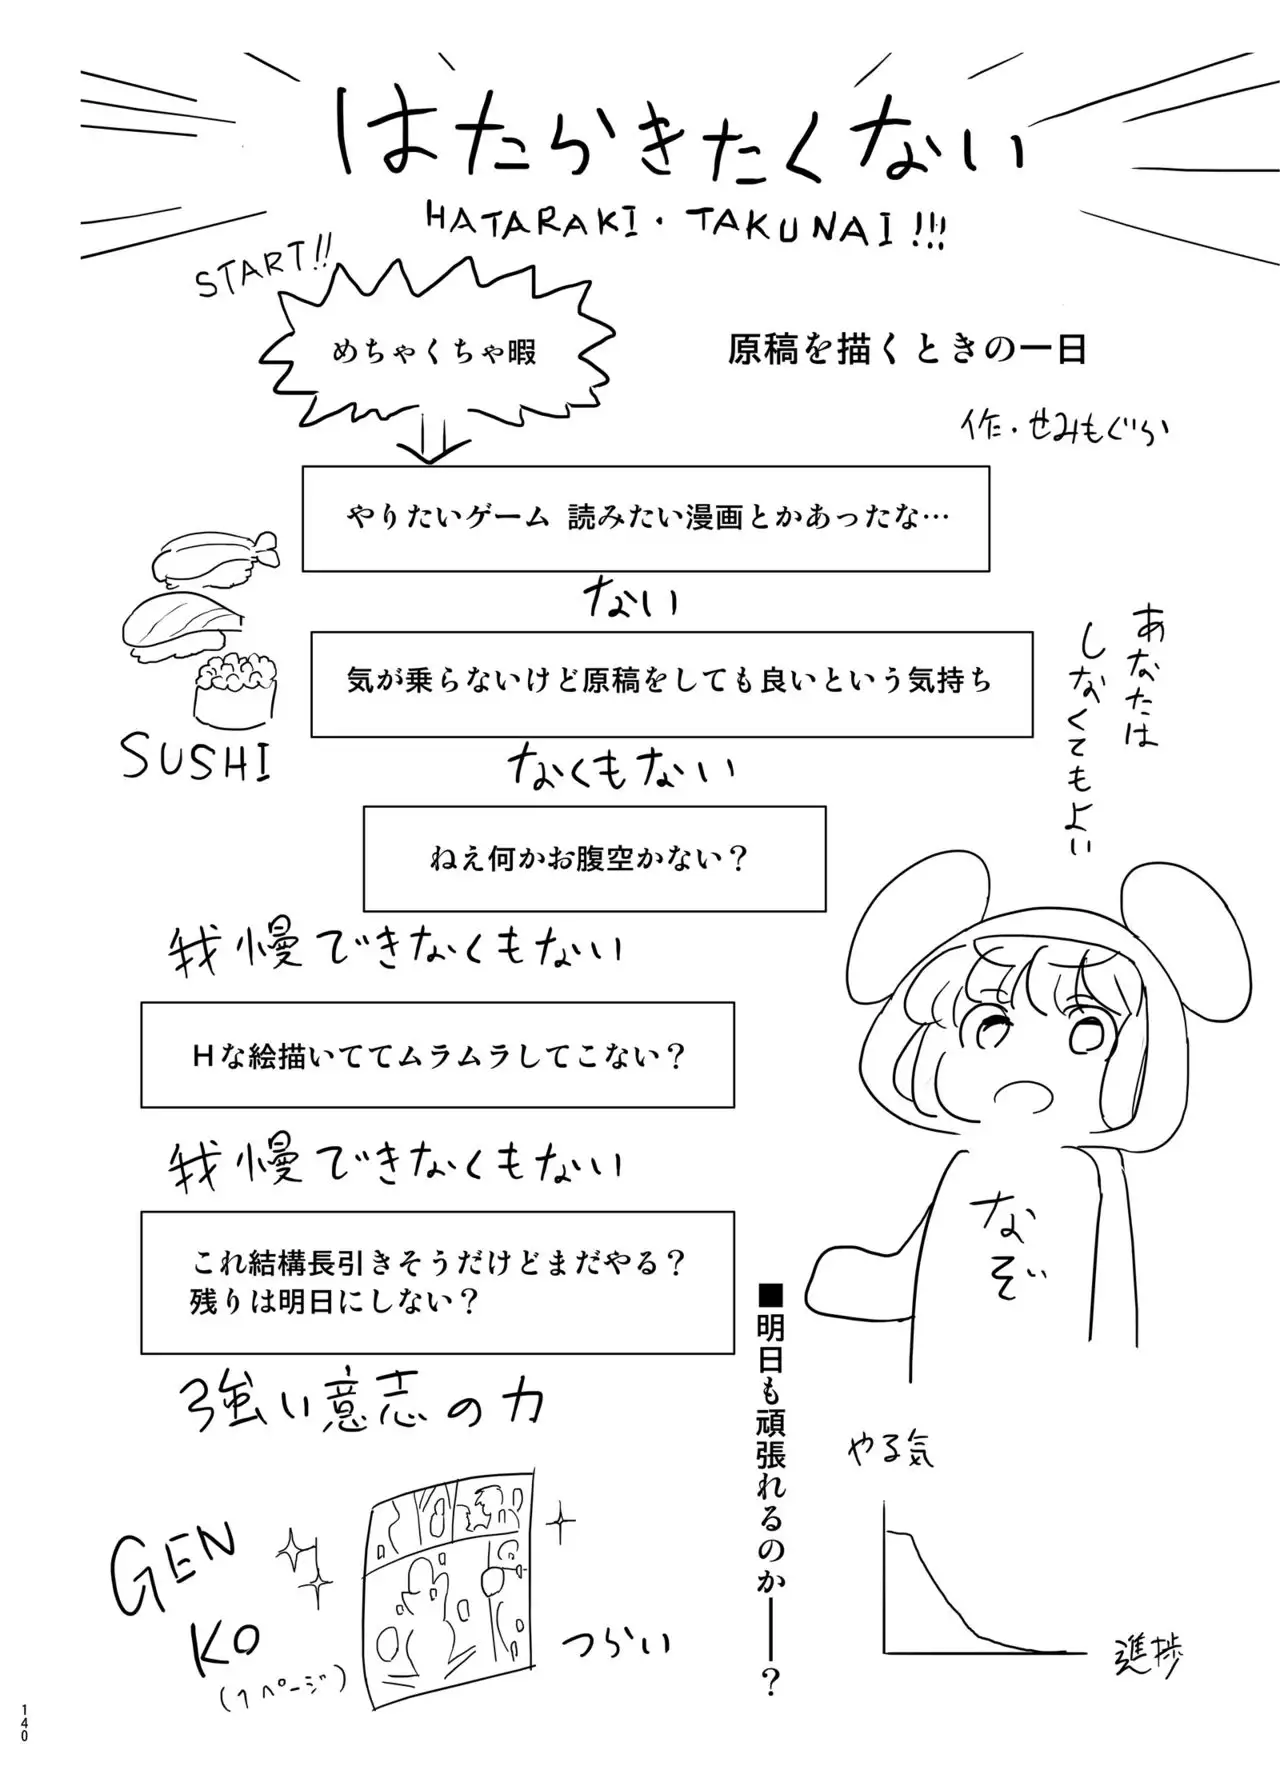 はたらきたくない
HATARAKI・TAKUNAI!!!
START!!
めちゃくちゃ暇
原稿を描くときの一日
作・せみもぐら
やりたいゲーム 読みたい漫画とかあったな…
ない
気が乗らないけど原稿をしても良いという気持ち
SUSHI
なくもない
あなたは
しなくてもよい
ねえ何かお腹空かない？
我慢できなくもない
Ｈな絵描いててムラムラしてこない？
我慢できなくもない
なぞ
これ結構長引きそうだけどまだやる？
残りは明日にしない？
強い意志の力
■明日も頑張れるのか――？
やる気
進捗
GEN
KO
(1ページ)
つらい
140